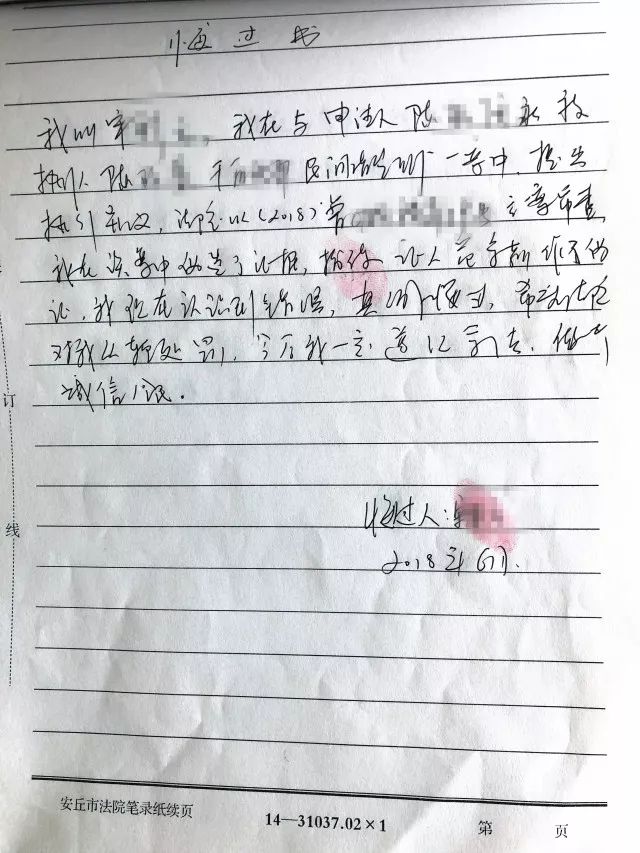 悔过书
我叫宋 我在与申请人陈 被
执行人陈 民间借贷纠纷一案中,提出
执行异议,法院以(2018)鲁 立案审查
我在该案中伪造了证据, 证人 作了伪
证,我现在认识到错误,真诚悔过,希望法院
对我从轻处罚,今后我一定遵纪守法,做个
诚信公民.
悔过人:宋
2018年6月
订
线
安丘市法院笔录纸续页
14—31037.02×1
第 页